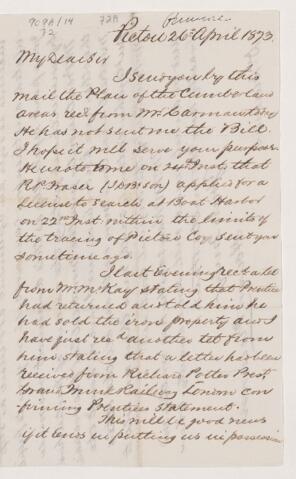 909A/14
72
72A
Pictou 26 April 1873.
My Dear Sir
I send you by this
mail the Plan of the Cumberland
areas recd from Mr
He has not sent me the Bill.
I hope it will serve your purpose.
He wrote to me on 24th Inst. that
R.P. Fraser (J.D.B's son) applied for a
License to search at Boat Harbor
on 22nd Inst within the limits of
the tracing of Pictou Coy sent you
sometime ago.
I last Evening recd a let
from Mr McKay stating that Prentice
had returned and told him he
had sold the iron property and I
have just recd another let from
him stating that a letter has been
received from Richard Potter Prest
Grand Trunk Railway London con
firming Prentices statement.
This will be good news
if it ends in putting us in possession